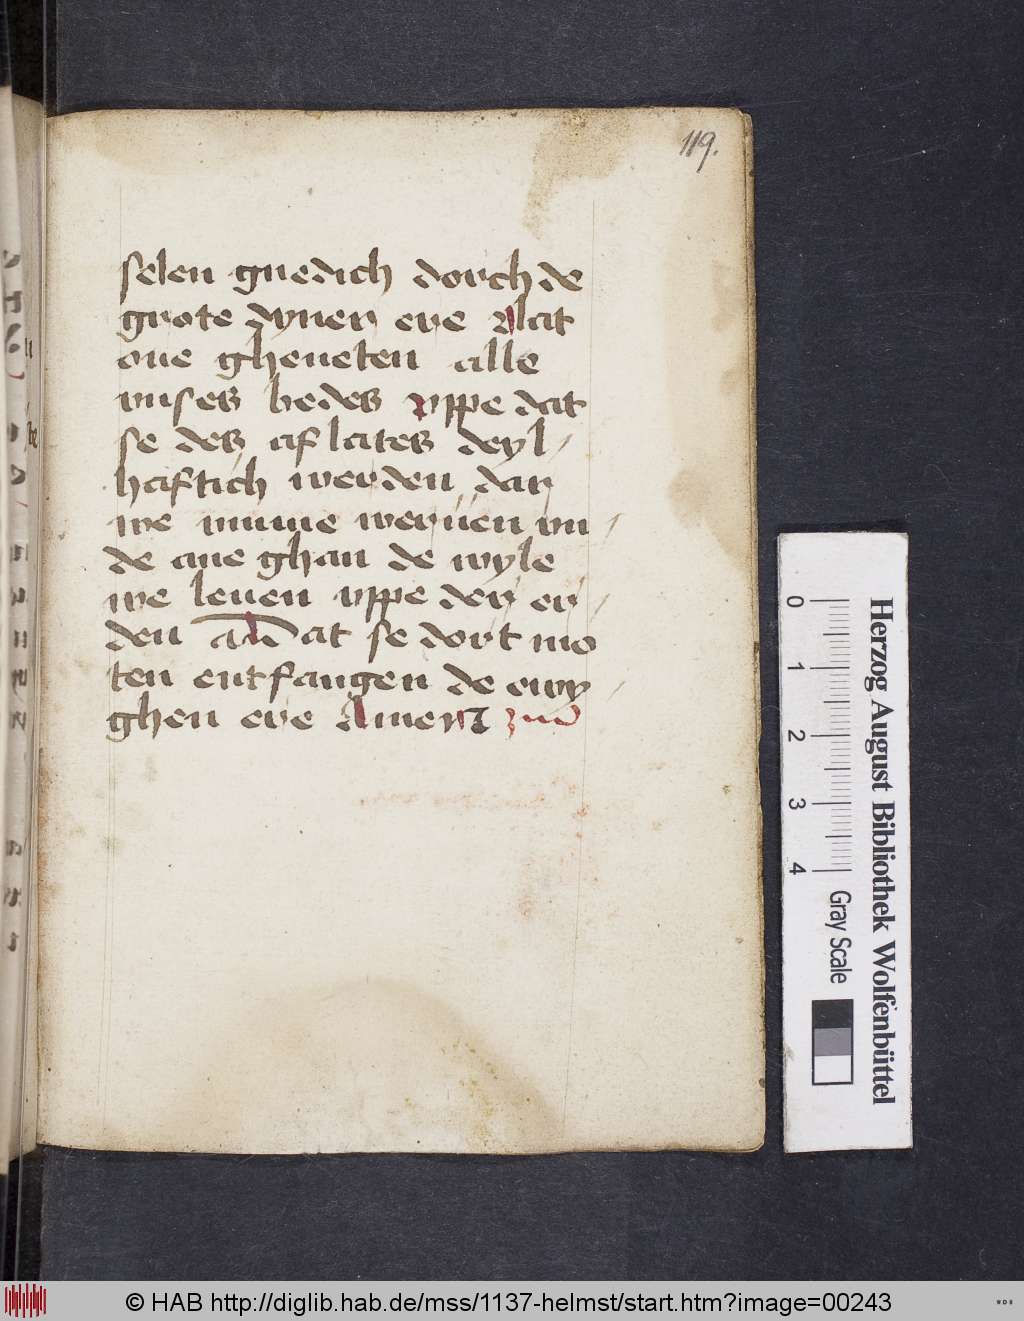 119.
selen gnedich dorch de
grote dyner ere vlat
one gheneten alle
vnses bedes vppe dat
se des aflates deyl/
haftich werden dar
we mme weruen vn/
de ane ghan de wyle
we leuen vppe der er/
den dat se dort mo
ten entfangen de ewy/
ghen ere Amen
Herzog August Bibliothek Wolfenbüttel
0 1 2 3 4 Gray Scale
© HAB http://diglib.hab.de/mss/1137-helmst/start.htm?image=00243